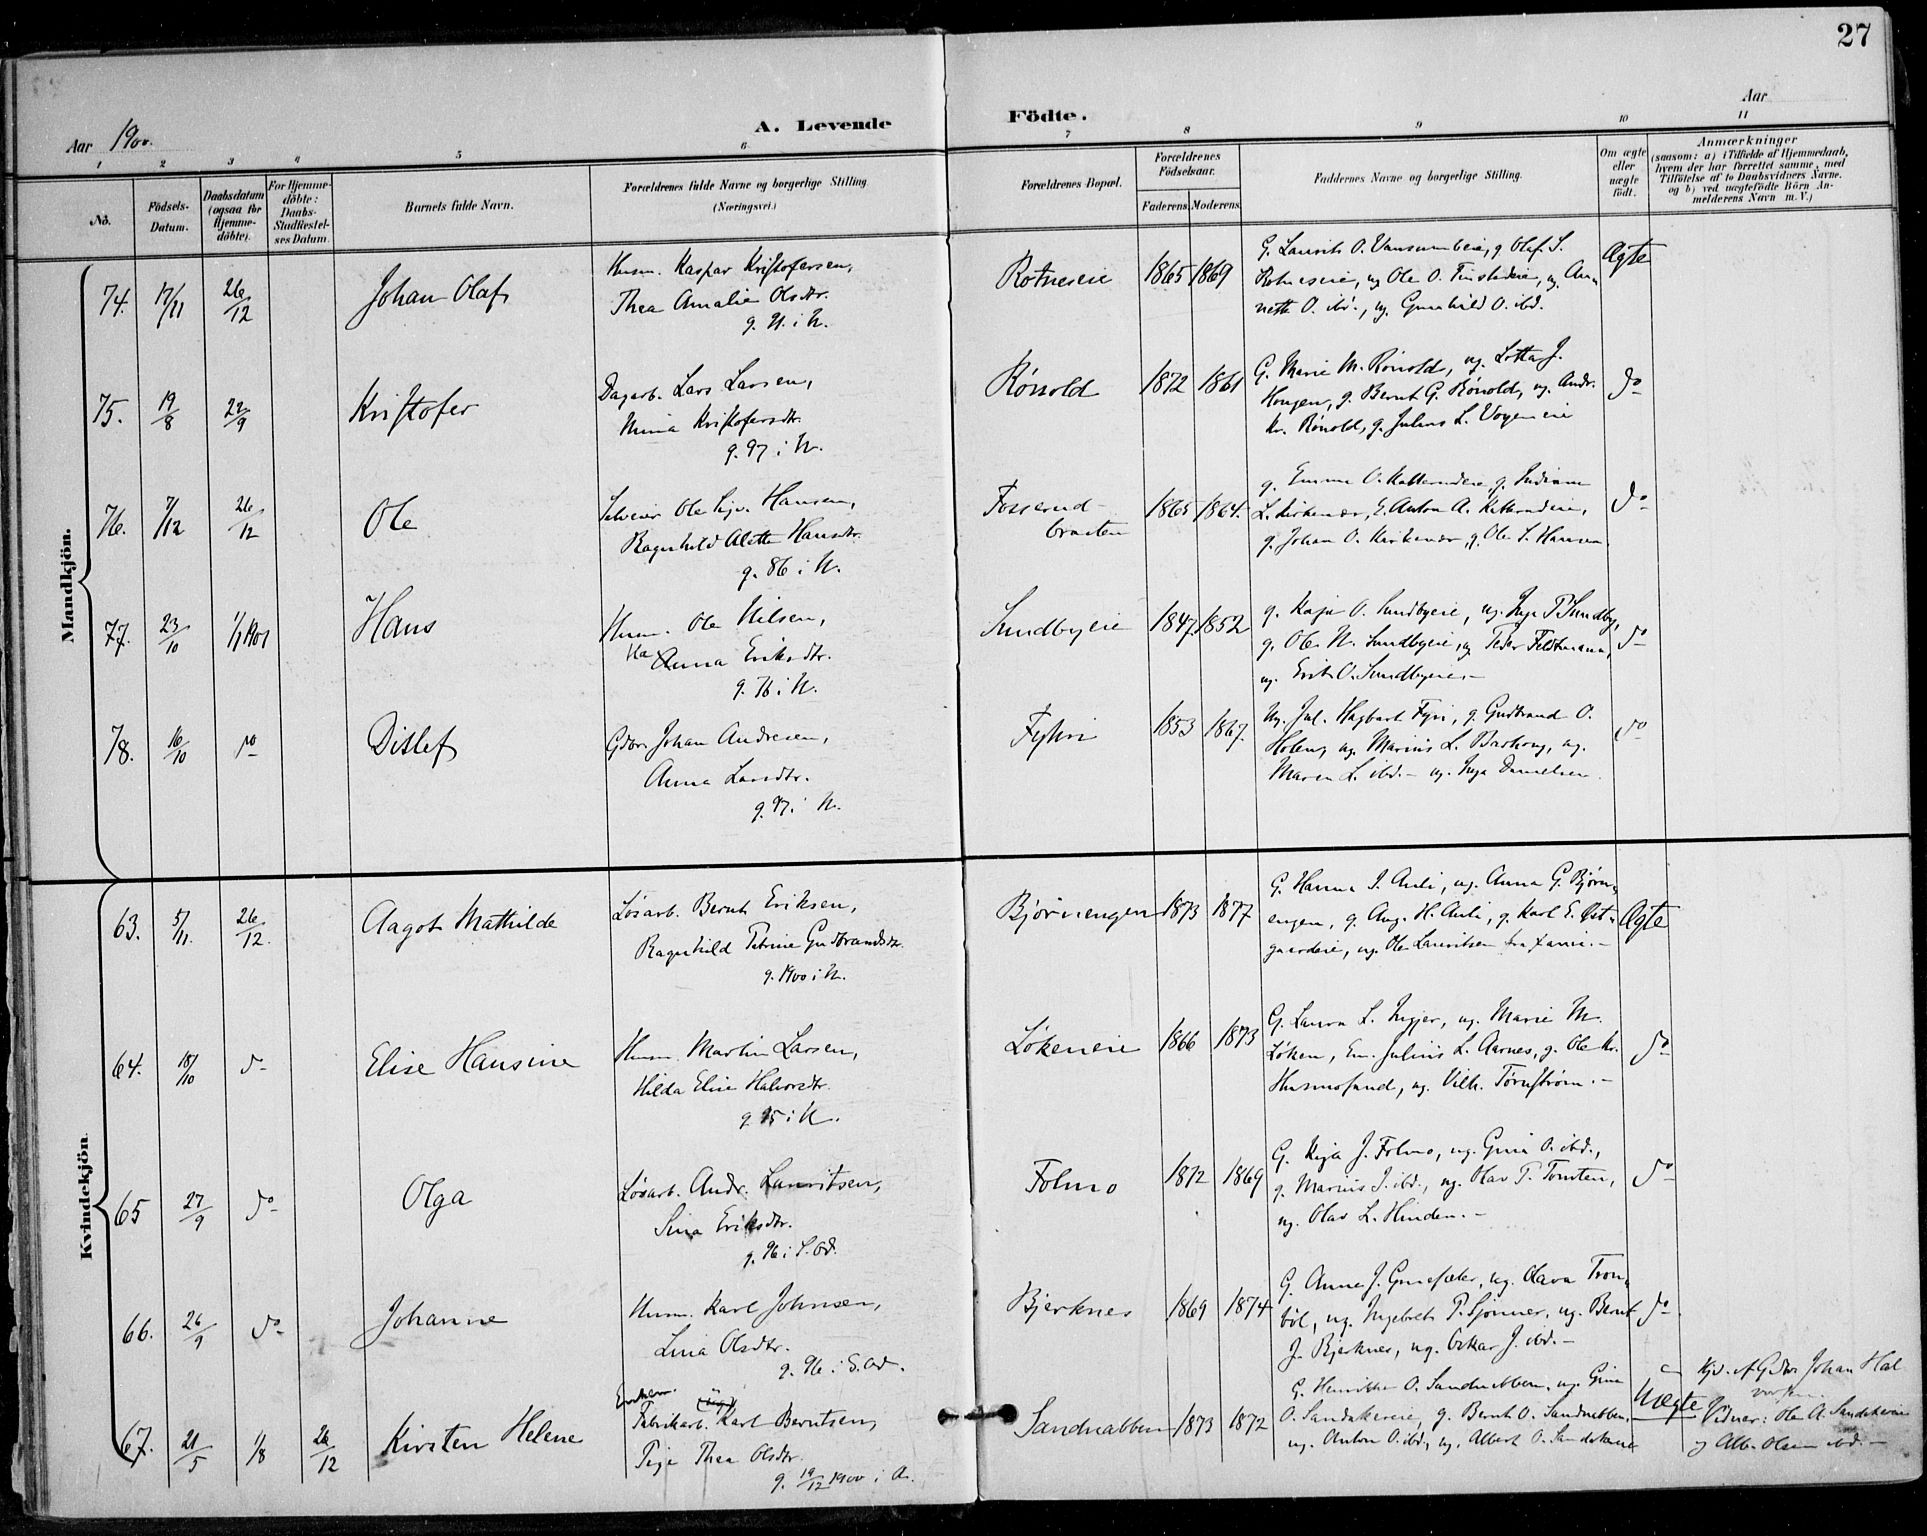 27
Aar 1900.
A. Levende
Födte.
Aar
1 2 3 4 5 6 7 8 9 10 11
No.
Födsels-Datum.
Daabsdatum (ogsaa for Hjemme-döbte).
For Hjemme-döbte: Daabs-Stadfæstel-ses Datum.
Barnets fulde Navn.
Forældrenes fulde Navne og borgerlige Stilling
(Næringsvei.)
Forældrenes Bopæl.
Forældrenes Födselsaar.
Faderens. Moderens.
Faddernes Navne og borgerlige Stilling.
Om ægte eller uægte födt.
Anmærkninger
(saasom: a) i Tilfælde af Hjemmedaab,
hvem der har forrettet samme, med
Tilföielse af to Daabsvidners Navne,
og b) ved uægtefödte Börn An-
melderens Navn m. V.)
Mandkjön.
74. 17/11 26/12 Johan Olaf
Husm. Kaspar Kristofersen,
Thea Amalie Olsdtr.
Rotneseie 1865 1869
G. Laurits O. Vansumbeie, g. Olaf S.
Rotneseie, ug Ole O. Finstadeie, ug. An-
nette O. ibd., ug. Gunhild O. ibd.
Ægte
75. 19/8 22/9 Kristofer
Dagarb. Lars Larsen,
Mina Kristofersdtr.
g. 97 i N.
Rönold 1872 1861
G. Marie M. Rönold, ug. Lotta J.
Haugen, g. Bernt G. Rönold, ug. Andr.
Kr. Rönold, g. Julius L. Vogneneie
do
76. 7/12 26/12 Ole
Selveier Ole Sigv. Hansen,
Ragnhild Alette Hansdtr.
g. 86 i N.
Fosserud-
braaten 1865 1864.
g. Johan O. Kirkenær, g. Ole S. Hansen
do
77. 23/10 1/1 1901 Hans
Husm. Ole Nilsen,
Anna Eriksdtr.
g. 76 i N.
Sundbyeie 1847 1852
g. Kaja O. Sundbyeie, ug. Inga P. Sundby,
g. Ole N. Sundbyeie, ug Peder Feldtmann,
ug. Erik O. Sundbyeie.-
do
78. 16/10 do Ditlef
Gdbr. Johan Andresen,
Anna Larsdtr.
g. 97 i N.
Fyhri 1853 1867.
Ug. Jul. Hagbart Fyri, g. Gudbrand O.
Holen, ug. Marius L. Barhoug, ug.
Maren L. ibd. - ug. Inga Danielsen.
do
Kvindekjön.
63. 5/11. 26/12. Aagot Mathilde
Løsarb. Bernt Eriksen,
Ragnhild Petrine Gudbrandsdtr.
g. 1900 i N.
Bjørnengen 1873 1877
G. Hanna I. Auli, ug. Anna G. Bjørn-
engen, g. Aug. H. Auli, g. Karl E. Øst-
gaardeie, ug. Ole Lauritsen
Ægte
64. 18/10 do Elise Hansine
Husm. Martin Larsen,
Hilda Elise Halvorsdtr.
g. 95 i N.
Løkeneie 1866 1873
G. Laura L. Ingjer, ug. Marie M.
Løken, Em. Julius L. Aarnes, g. Ole Kr.
Husmosand, ug. Vilh. Törnström.-
do
65 27/9 do Olga
Løsarb. Andr. Lauritsen,
Sina Eriksdtr.
g. 96 i S. Od.
Folmo 1872 1869
G. Kaja J. Folmo, ug. Gina O. ibd.,
g. Marius J. ibd., ug. Olav P. Tomten,
ug. Olav L. Hinden.-
do
66. 26/9 do Johanne
Husm. Karl Johnsen,
Lina Olsdtr.
g. 96 i S. Od.
Bjerknes 1869 1874
böl, ug. Ingebret P. Sjönner, ug. Bernt
J. Bjerknes, ug. Oskar J. ibd.-
do
67. 21/5 1/8 26/12 Kirsten Helene
Fabrikarb. Karl Berntsen,
Thea Olsdtr.
g. 19/12 1900 i A.
Sandnabben 1873 1872
G. Henrikke O. Sandnabben, ug. Gina
O. Sandakereie, g. Bernt O. Sandnabben,
ug. Anton O. ibd., ug. Albert O. Sandakereie
Uægte
Kjd. af Gdbr. Johan Hal-
vorsen.
Vidner: Ole A. Sandakereie
og Alb. Olsen ibd.-